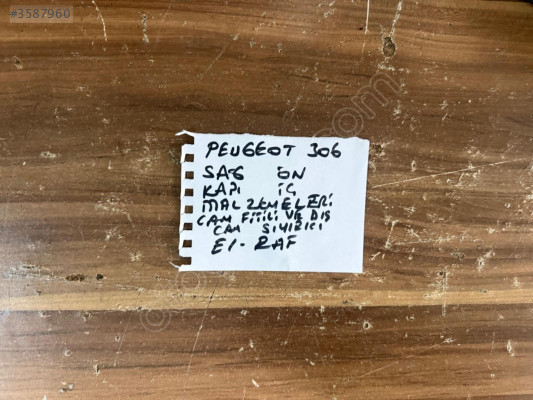 #3587960
PEUGEOT 306
SAG ÖN
KAPI İÇ
MALZEMELERİ
CAM FİTİLİ VE DIŞ
CAM SIYIRICI
E1-RAF